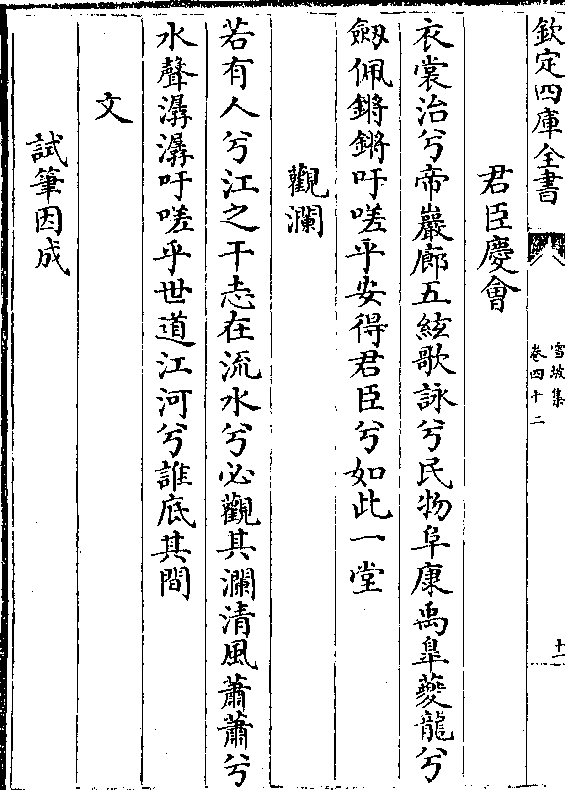 欽定四庫全書
雪坡集
卷四十二
十一
君臣慶會
衣裳治兮帝巖廊五絃歌詠兮民物阜康禹臯夔龍兮
劔佩鏘鏘吁嗟乎安得君臣兮如此一堂
觀瀾
若有人兮江之干志在流水兮必觀其瀾清風蕭蕭兮
水聲潺潺吁嗟乎世道江河兮誰底其間
文
試筆因成